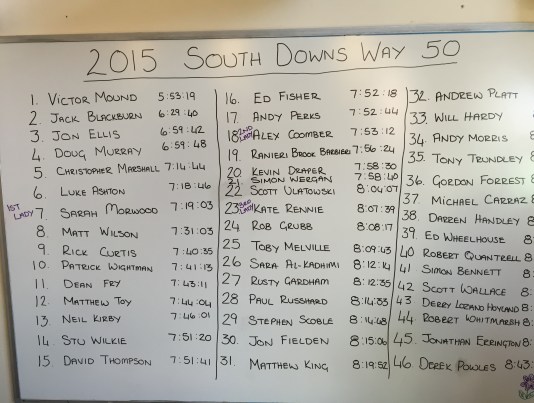 2015 SOUTH DOWNS WAY 50
1. VICTOR MOUND 5:53:19
2. JACK BLACKBURN 6:29:40
3. JON ELLIS 6:59:42
4. DOUG MURRAY 6:59:48
5. CHRISTOPHER MARSHALL 7:14:44
6. LUKE ASHTON 7:18:46
1ST LADY 7. SARAH MORWOOD 7:19:03
8. MATT WILSON 7:31:03
9. RICK CURTIS 7:40:35
10. PATRICK WIGHTMAN 7:41:13
11. DEAN FRY 7:43:11
12. MATTHEW TOY 7:44:04
13. NEIL KIRBY 7:46:01
14. STU WILKIE 7:51:20
15 DAVID THOMPSON 7:51:41
16. ED FISHER 7:52:18
17. ANDY PERKS 7:52:44
18 2ND LADY ALEX COOMBER 7:53:12
19. RANIERI BROOK BARBIERI 7:56:24
20 KEVIN DRAPER 7:58:30
21. SIMON WERGAN 7:58:40
22 SCOTT ULATOWSKI 8:04:07
23 3RD LADY KATE RENNIE 8:07:39
24 ROB GRUBB 8:08:17
25 TOBY MELVILLE 8:09:43
26 SARA AL-KADHIMI 8:12:14
27 RUSTY GARDHAM 8:12:35
28 PAUL RUSSHARD 8:14:33
29 STEPHEN SCOBLE 8:14:48
30. JON FIELDEN 8:15:06
31. MATTHEW KING 8:19:52
32. ANDREW PLATT
33. WILL HARDY
34. ANDY MORRIS 8
35. TONY TRUNDLEY
36. GORDON FORREST 8
37. MICHAEL CARRAZ 8
38. DARREN HANDLEY 8
39. ED WHEELHOUSE 8
40 ROBERT QUANTRELL 8
41 SIMON BENNETT 8
42 SCOTT WALLACE 8:
43 DERRY LOZANO HOYLAND 8:
44 ROBERT WHITMARSH 8:
45. JONATHAN ERRINGTON 8:
46 DEREK POWLES 8:43: